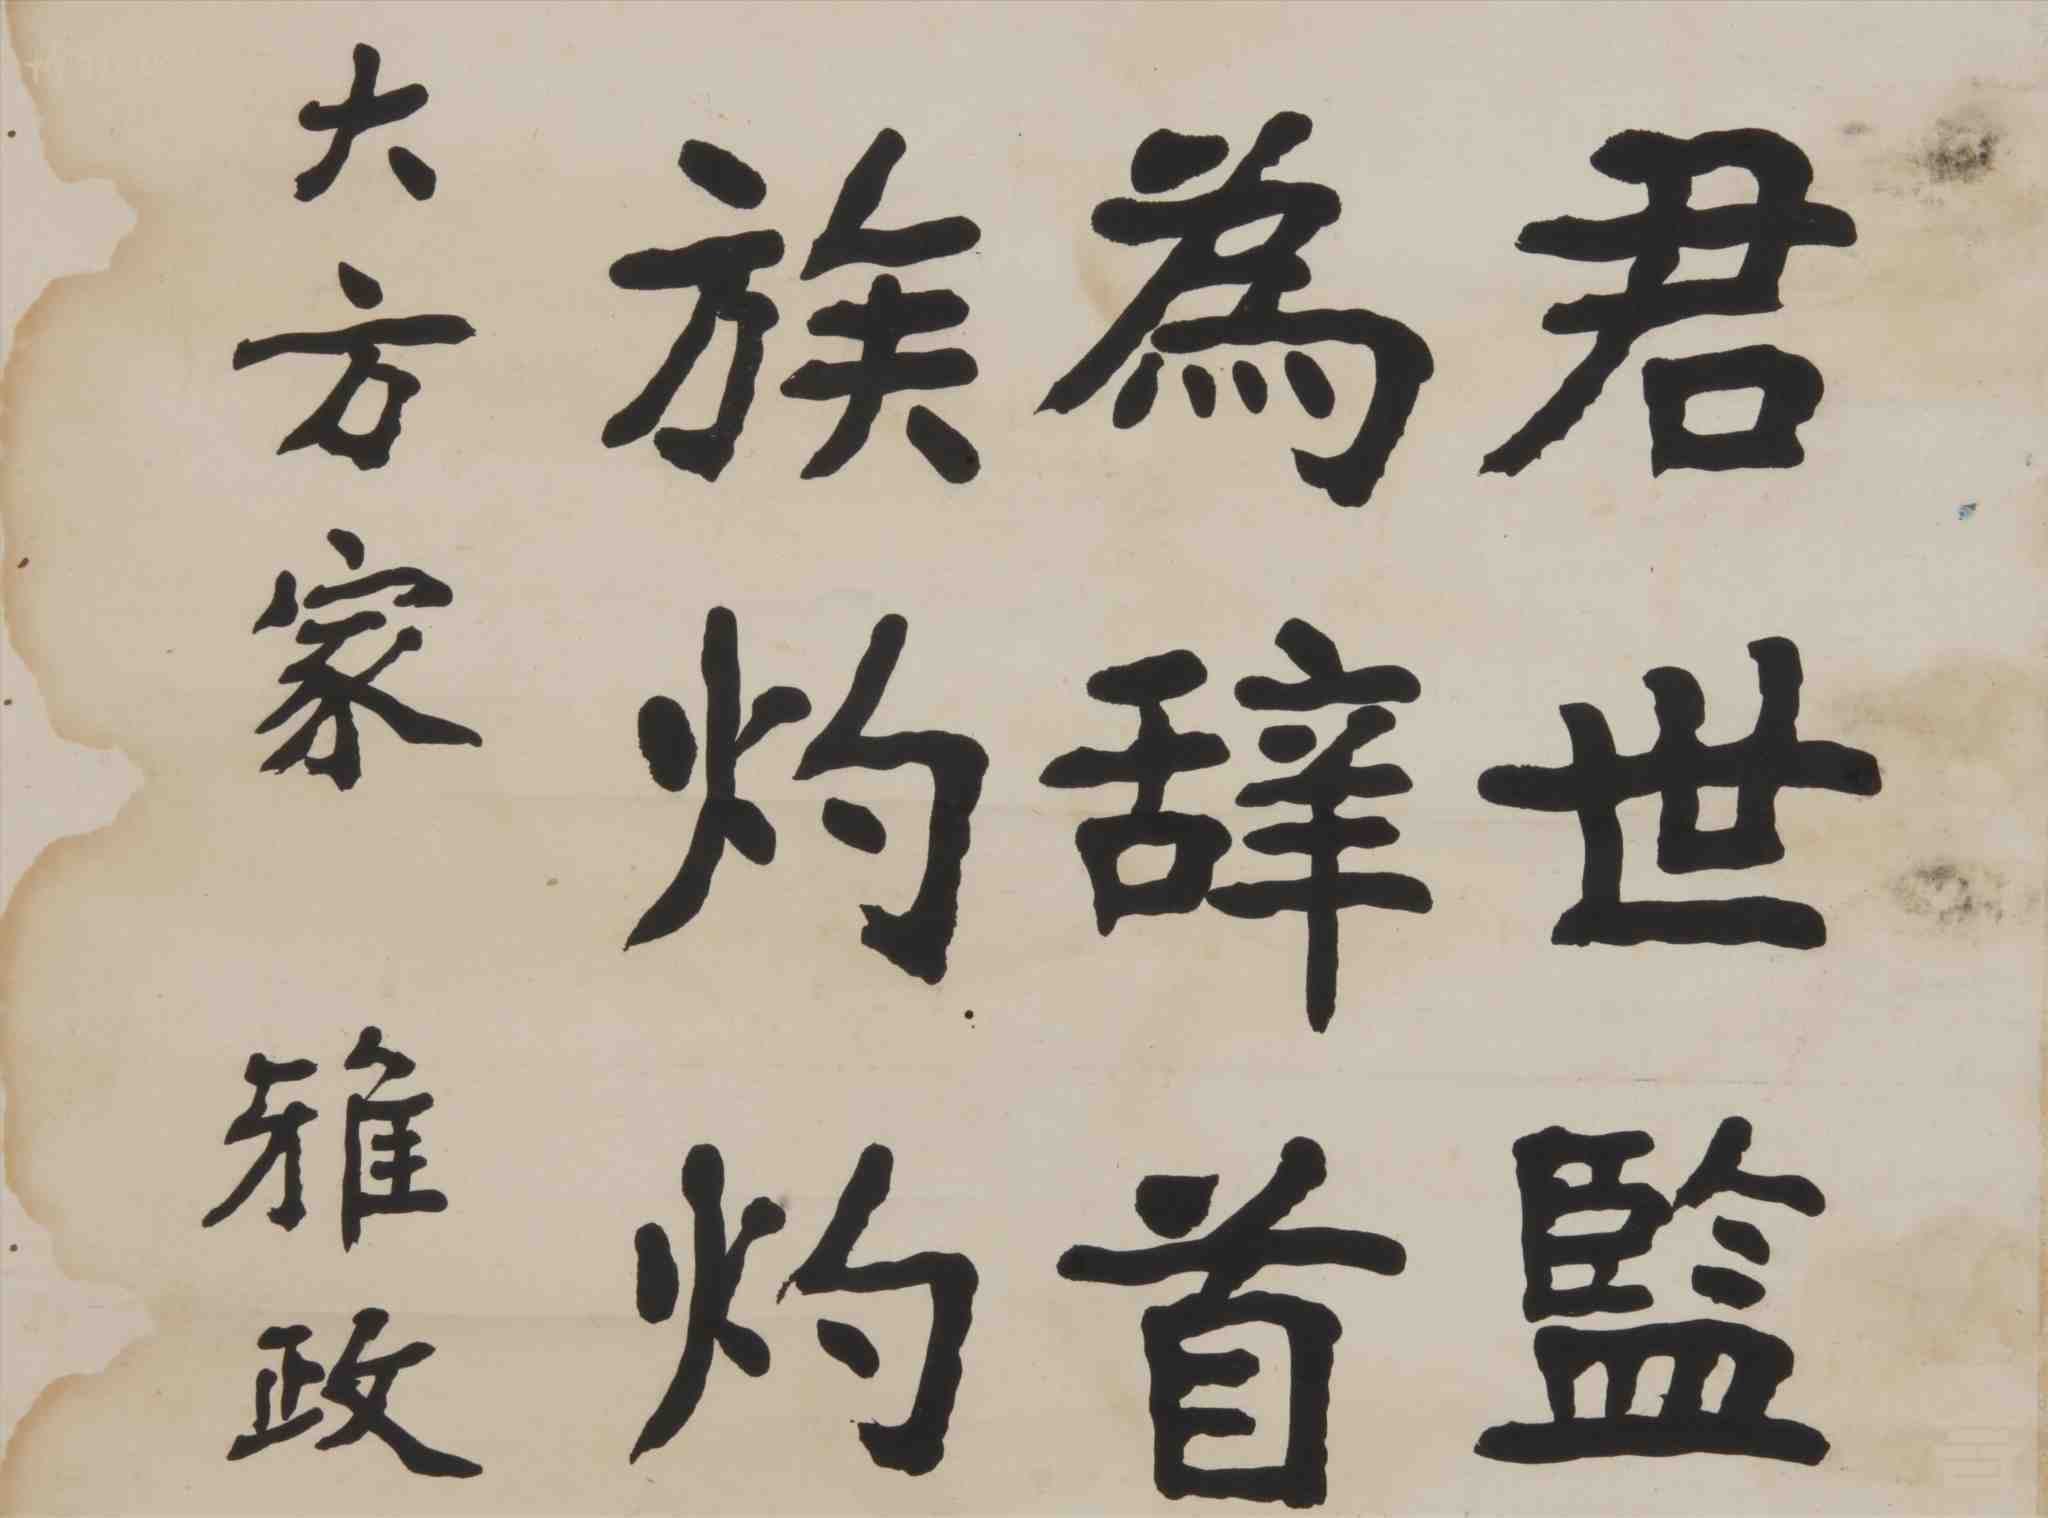 君世監
為辞首
族灼灼
大方家 雅政